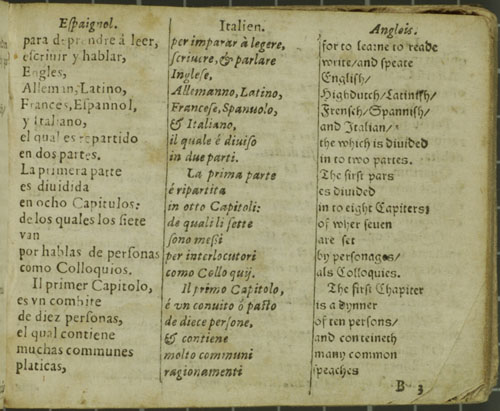 Espaignol.
para deprendre á leer,
escriuir y hablar,
Engles,
Alleman, Latino,
Frances, Espannol,
y Italiano,
el qual es repartido
en dos partes.
La primera parte
es diuidida
en ocho Capitulos:
de los quales los siete
van
por hablas de personas
como Colloquios.
Il primer Capitolo,
es vn combite
de diez personas,
el qual contiene
muchas communes
platicas,
Italien.
per imparar à legere,
scriuere, & parlare
Inglese,
Allemanno, Latino,
Francese, Spanuolo,
& Italiano,
il quale é diuiso
in due parti.
La prima parte
é ripartita
in otto Capitoli:
de quali li sette
sono messi
per interlocutori
como Collo quij.
Il primo Capitolo,
é vn conuito ò pasto
de diece persone,
& contiene
molto communi
ragionamenti
Anglois.
for to learne to reade
write/and speake
English/
Highdutch/Latinish/
Frensch/Spannish/
and Italian/
the which is diuided
in to two partes.
The first pars
es diuided
in to eight Capiters;
of wher seuen
are set
by personages/
als Colloquies.
The first Chapiter
is a dynner
of ten persons/
and conteineth
many common
speaches
B 3